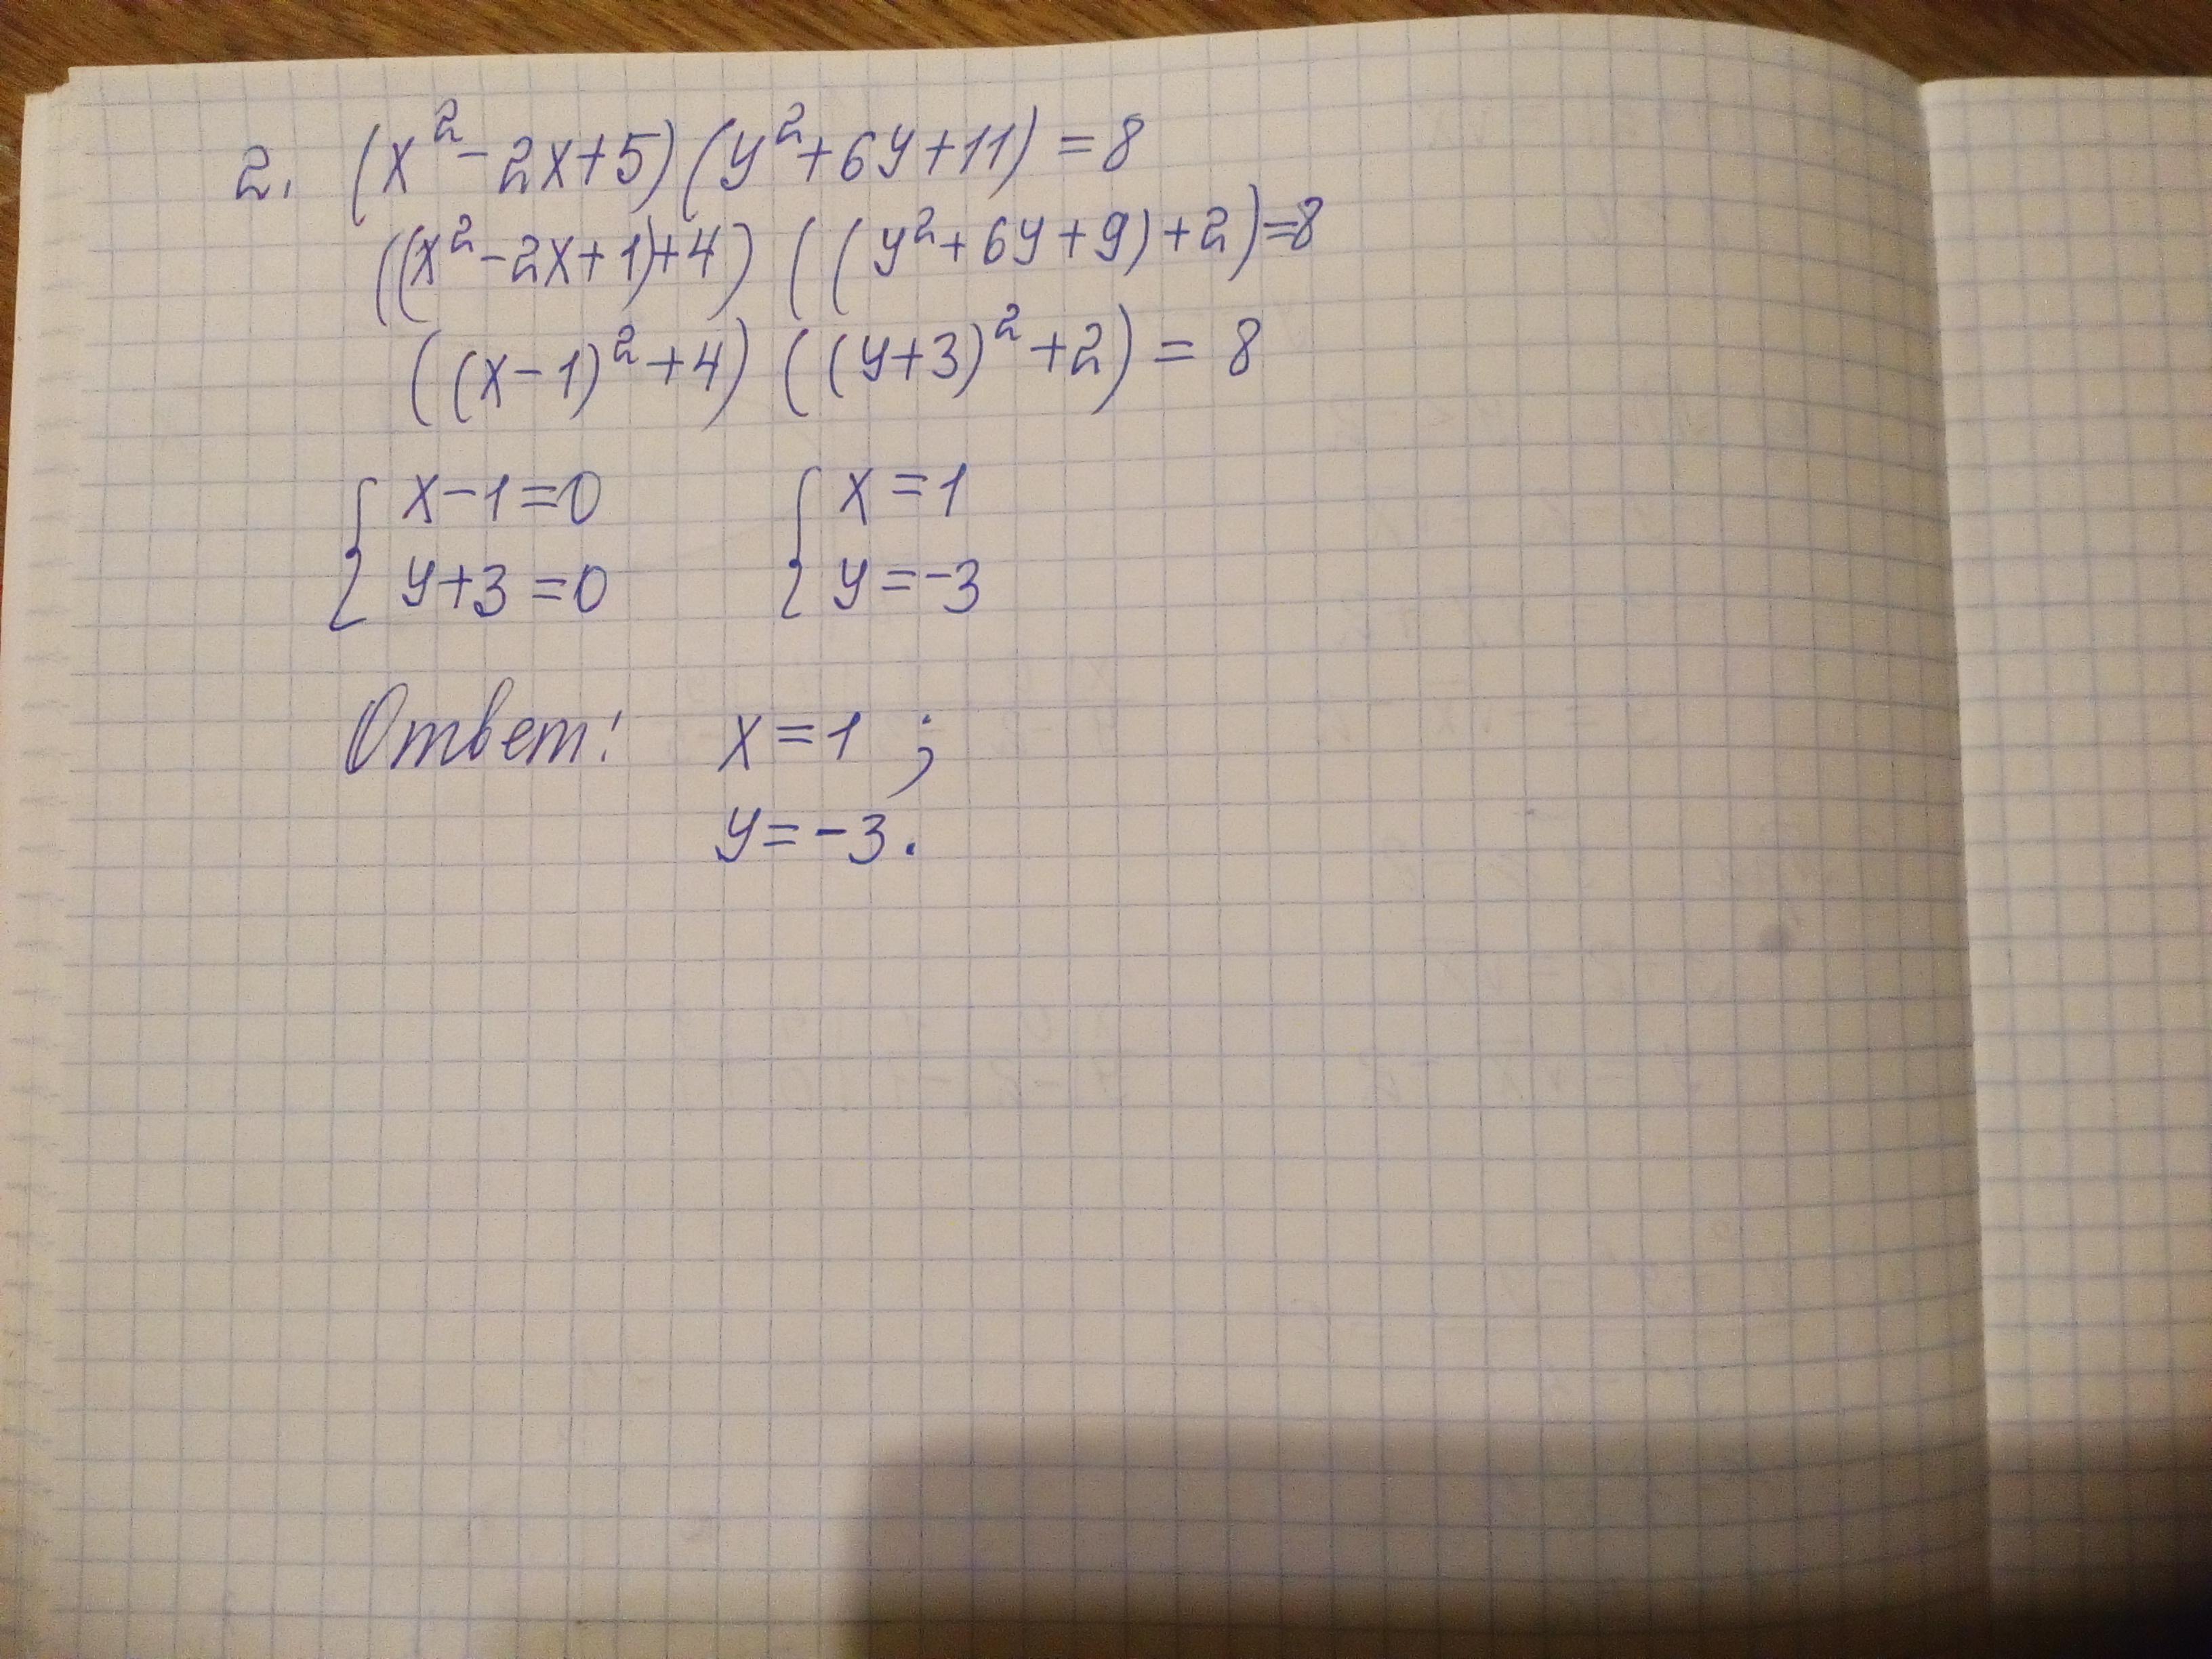 2. (x² - 2x + 5)(y² + 6y + 11) = 8
((x² - 2x + 1) + 4) ((y² + 6y + 9) + 2) = 8
((x - 1)² + 4) ((y + 3)² + 2) = 8
{ x - 1 = 0 { x = 1
{ y + 3 = 0 { y = -3
Ответ: x = 1 ;
y = -3.